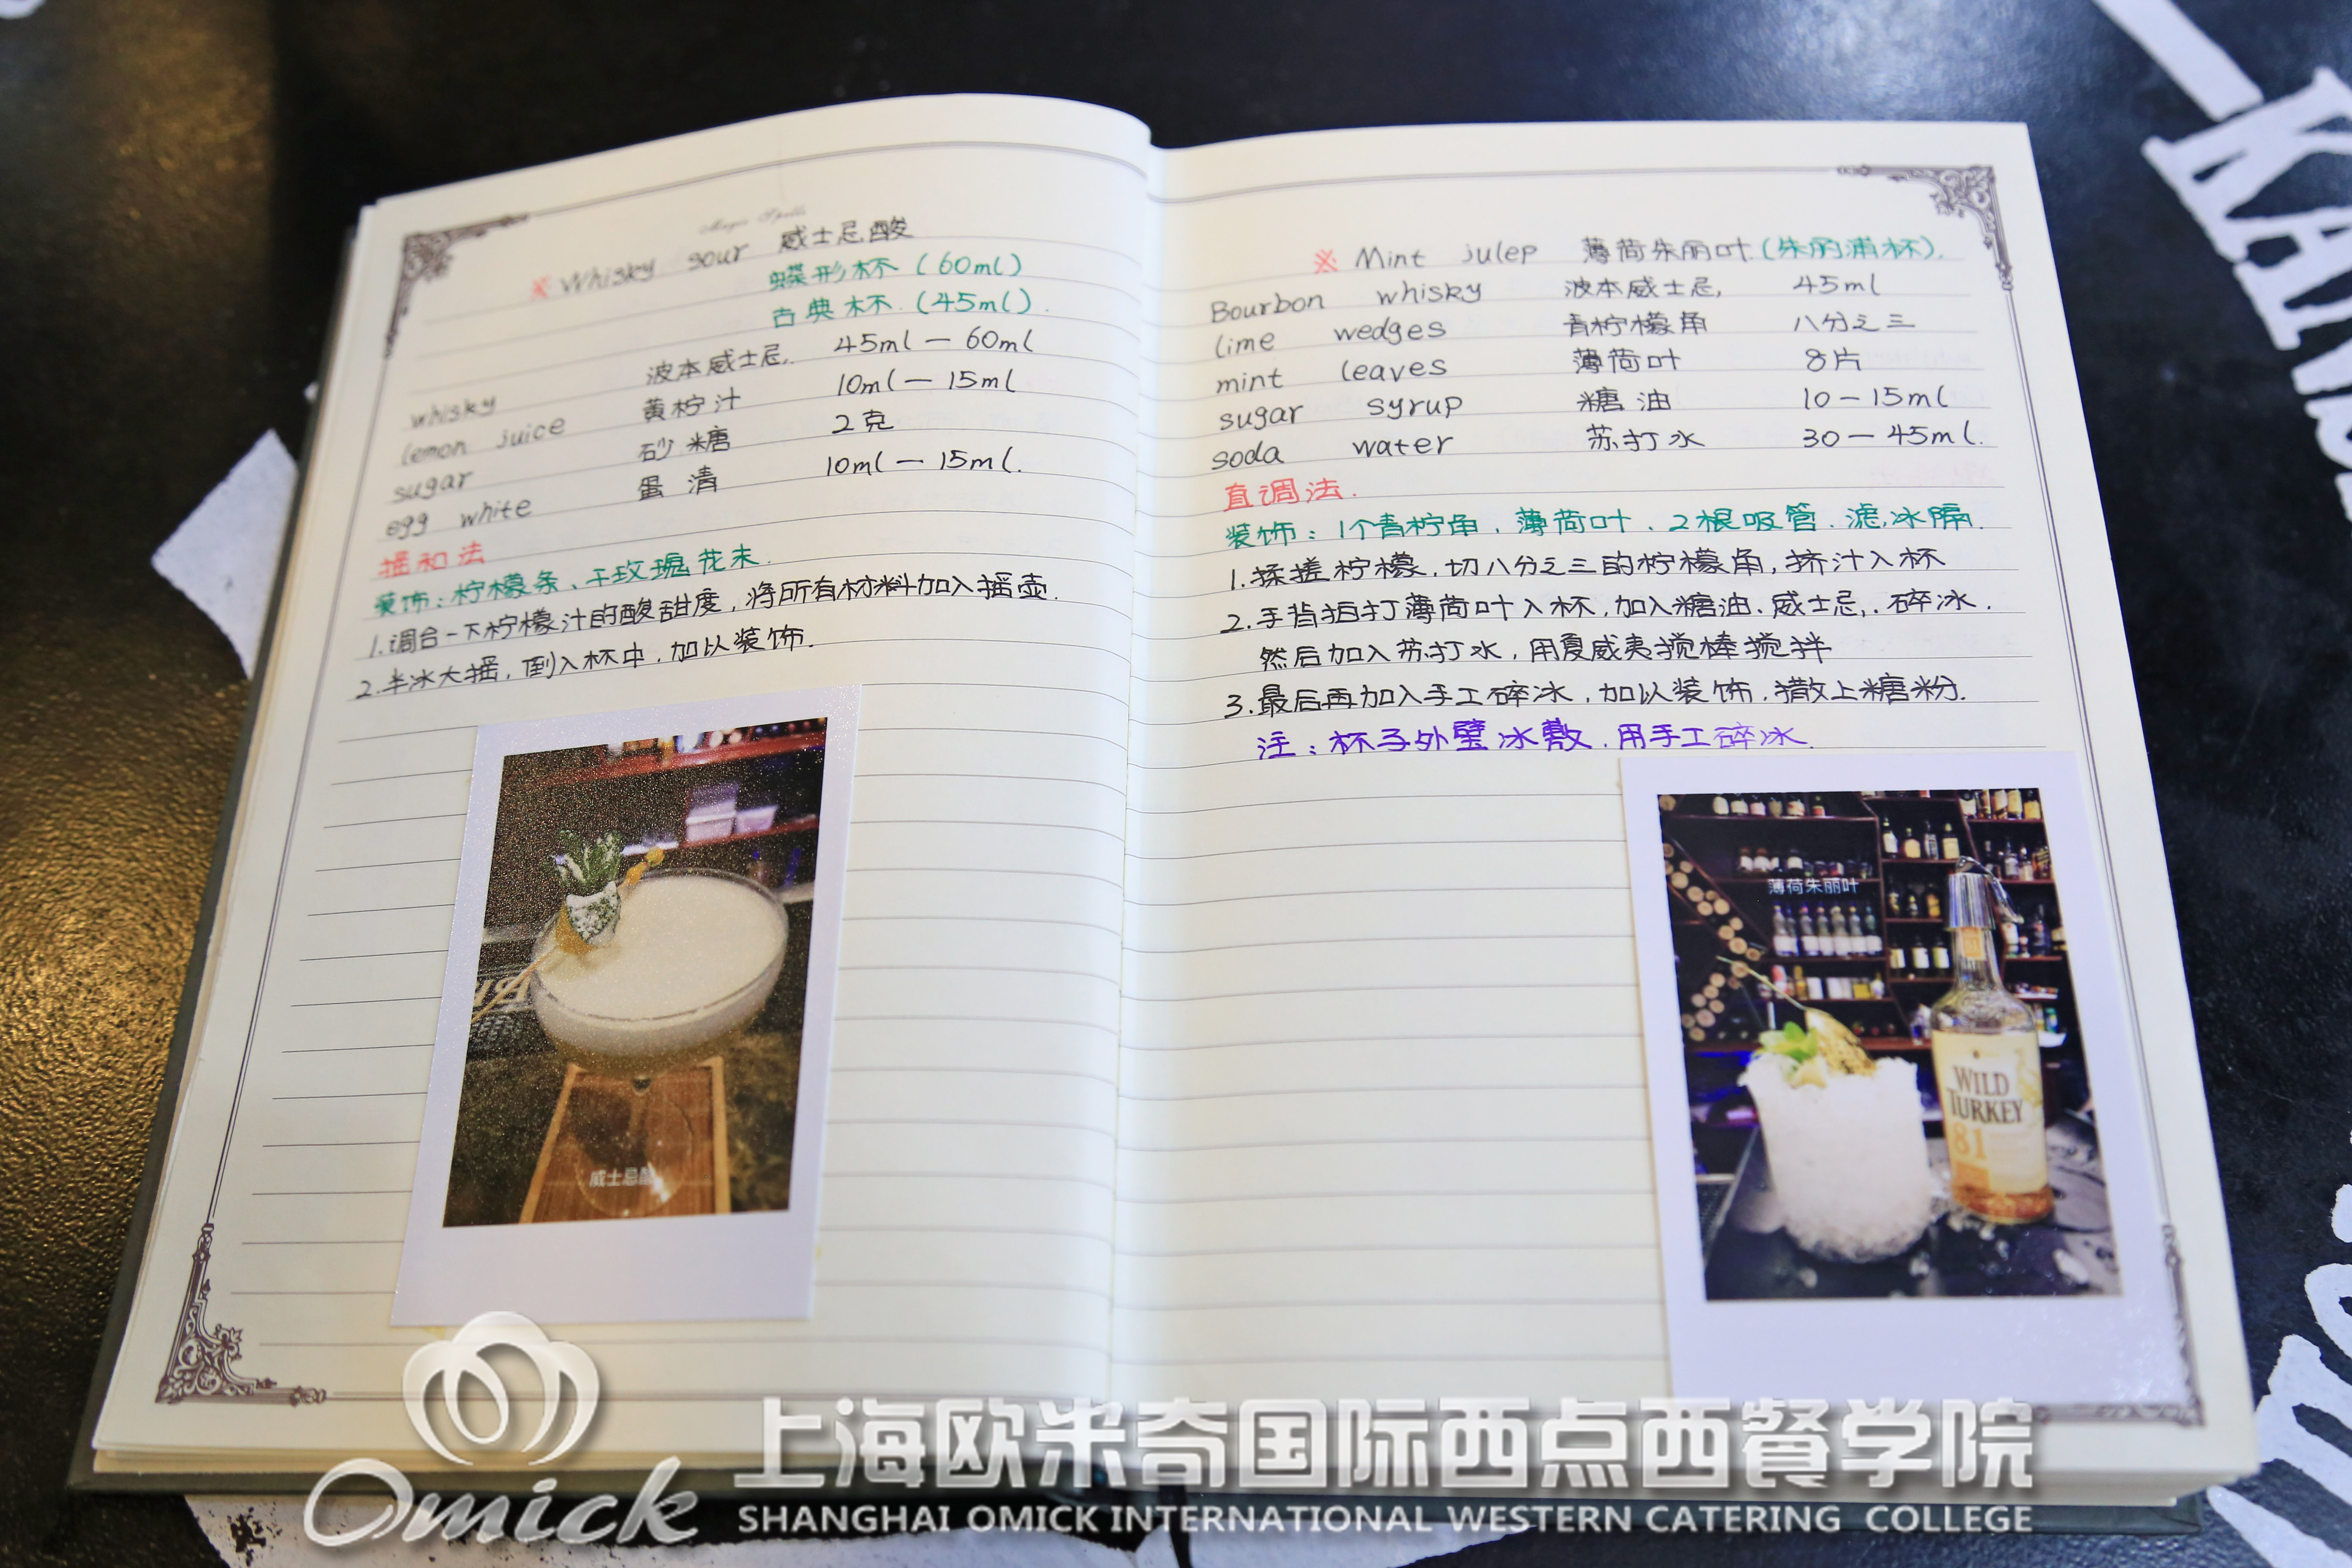 Magic Spells
※ Whisky sour 威士忌酸
蝶形杯 (60ml)
古典杯. (45ml).
whisky 波本威士忌. 45ml — 60ml
lemon juice 黄柠汁 10ml — 15ml
sugar 砂糖 2克
egg white 蛋清 10ml — 15ml.
摇和法
装饰:柠檬条、干玫瑰花末.
1.调合一下柠檬汁的酸甜度,将所有材料加入摇壶.
2.半冰大摇,倒入杯中,加以装饰.
威士忌酸
※ Mint julep 薄荷朱丽叶.(朱丽浦杯).
Bourbon whisky 波本威士忌, 45ml
lime wedges 青柠檬角 八分之三
mint leaves 薄荷叶 8片
sugar syrup 糖油 10 — 15ml
soda water 苏打水 30 — 45ml.
直调法.
装饰:1个青柠角,薄荷叶.2根吸管.滤冰隔.
1.揉搓柠檬,切八分之三的柠檬角,挤汁入杯
2.手背拍打薄荷叶入杯,加入糖油.威士忌,.碎冰.
然后加入苏打水,用夏威夷搅棒搅拌
3.最后再加入手工碎冰,加以装饰,撒上糖粉.
注:杯子外壁冰敷.用手工碎冰.
薄荷朱丽叶
WILD
TURKEY
81
Omick
上海欧米奇国际西点西餐学院
SHANGHAI OMICK INTERNATIONAL WESTERN CATERING COLLEGE